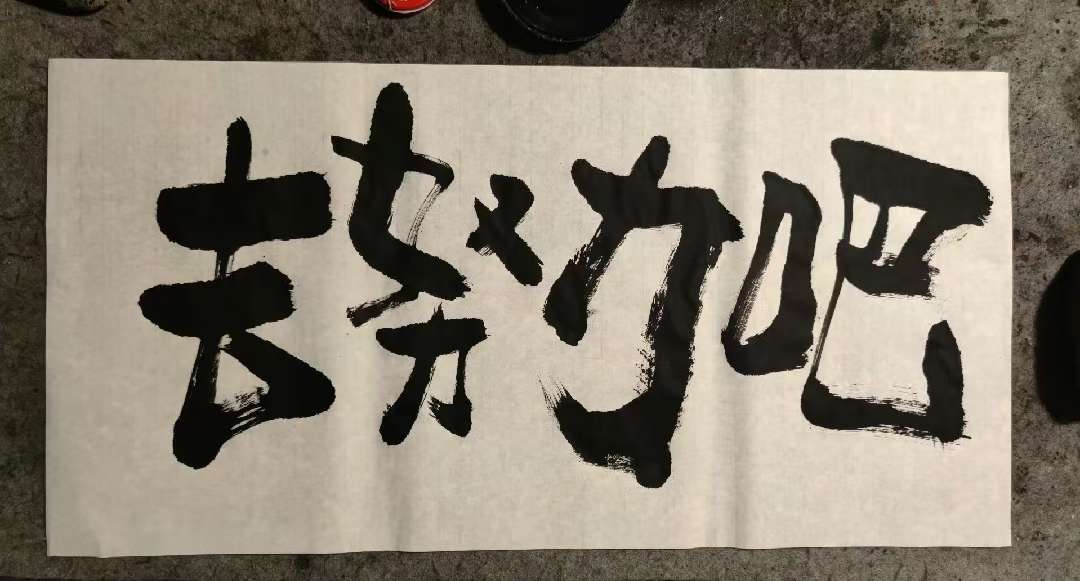 去努力吧